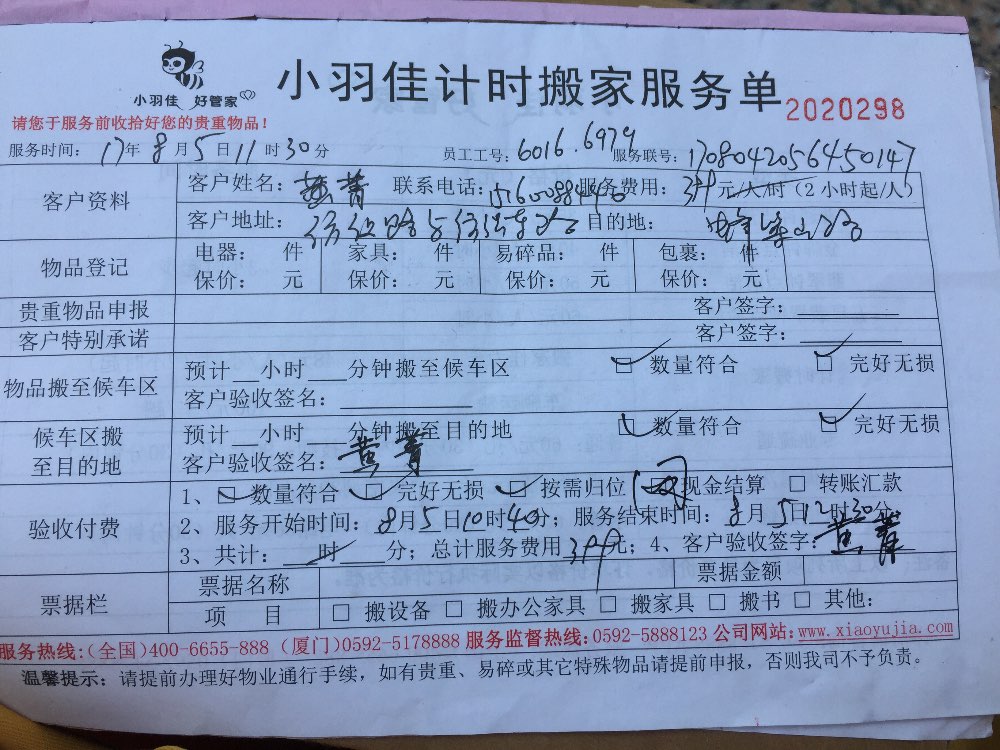 小羽佳 好管家
小羽佳计时搬家服务单 2020298
请您于服务前收拾好您的贵重物品！
服务时间： 17年 8月 5日 11时 30分 员工工号：6016.6979 服务联号：1708042056450147
客户资料 客户姓名： 菁 联系电话： 服务费用：399元/人/时（2小时起/人）
客户地址： 目的地：
物品登记 电器： 件 家具： 件 易碎品： 件 包裹： 件
保价： 元 保价： 元 保价： 元 保价： 元
贵重物品申报 客户签字：
客户特别承诺 客户签字：
物品搬至候车区 预计__小时___分钟搬至候车区 ☑ 数量符合 ☑ 完好无损
客户验收签名：
候车区搬至目的地 预计__小时___分钟搬至目的地 ☑ 数量符合 ☑ 完好无损
客户验收签名：黄菁
验收付费 1、☑ 数量符合 ☑ 完好无损 ☑ 按需归位 现金结算 □ 转账汇款
2、服务开始时间：8月5日10时40分；服务结束时间：8月5日12时30分
3、共计： 时 分；总计服务费用399元；4、客户验收签字：黄菁
票据栏 票据名称 票据金额
项 目 □ 搬设备 □ 搬办公家具 □ 搬家具 □ 搬书 □ 其他：
服务热线：(全国)400-6655-888 (厦门)0592-5178888 服务监督热线：0592-5888123 公司网站：www.xiaoyujia.com
温馨提示：请提前办理好物业通行手续，如有贵重、易碎或其它特殊物品请提前申报，否则我司不予负责。